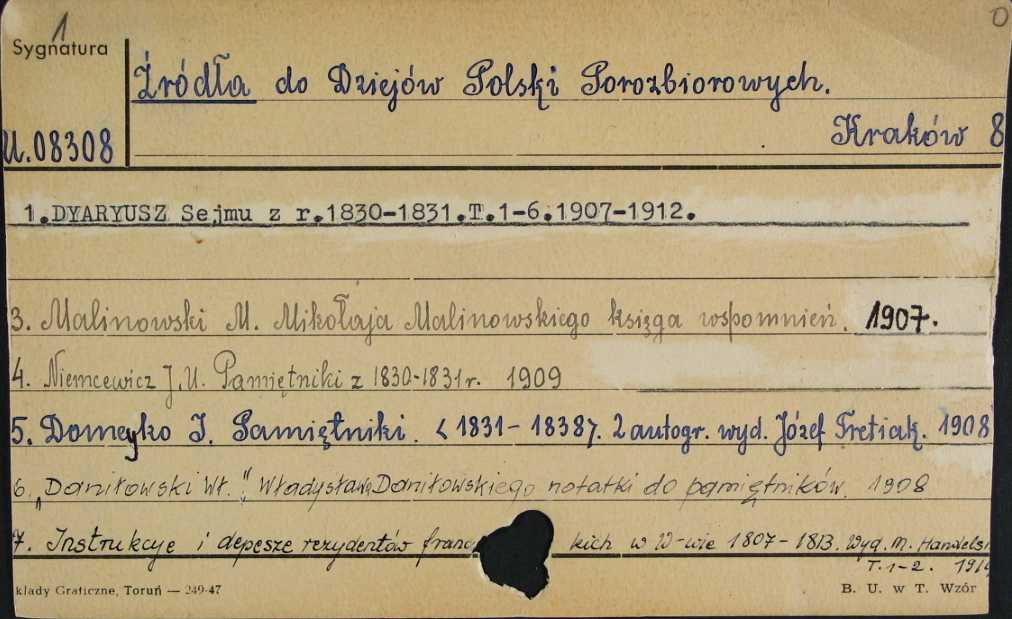 1
0
Sygnatura
Źródła do Dziejów Polski Porozbiorowych.
Kraków 8
U.08308
1.DYARYUSZ Sejmu z r.1830-1831.T.1-6.1907-1912.
3. Malinowski M. Mikołaja Malinowskiego księga wspomnień. 1907.
4. Niemcewicz J.U. Pamiętniki z 1830-1831r. 1909
5. Domeyko I. Pamiętniki. <1831-1838>. Z autogr. wyd. Józef Tretiak. 1908
6. „Daniłowski Wł.” Władysława Daniłowskiego notatki do pamiętników. 1908
7. Instrukcye i depesze rezydentów franc kich w W-wie 1807-1813. Wyd. M. Handels
T.1-2. 191
klady Graficzne, Toruń — 249-47
B. U. w T. Wzór